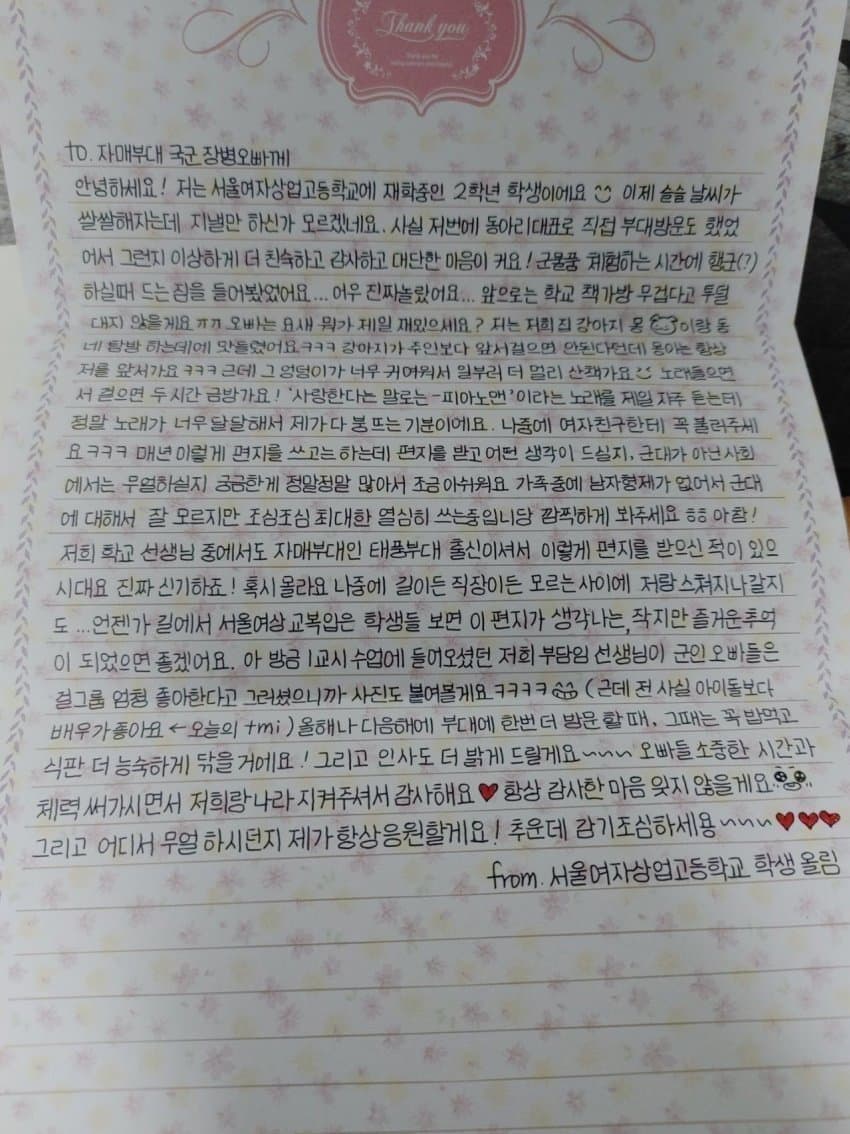 Thank you
to. 자매부대 국군 장병오빠께
안녕하세요! 저는 서울여자상업고등학교에 재학중인 2학년 학생이에요 이제 슬슬 날씨가
쌀쌀해지는데 지낼만 하신가 모르겠네요. 사실 저번에 동아리대표로 직접 부대방문도 했었
어서 그런지 이상하게 더 친숙하고 감사하고 대단한 마음이 커요! 군물품 체험하는 시간에 행군(?)
하실때 드는 짐을 들어봤었어요... 어우 진짜놀랐어요... 앞으로는 학교 책가방 무겁다고 투덜
대지 않을게요ㅠㅠ 오빠는 요새 뭐가 제일 재밌으세요? 저는 저희집 강아지 몽이랑 동
네 탐방 하는데에 맛들렸어요ㅋㅋㅋ 강아지가 주인보다 앞서걸으면 안된다던데 몽이는 항상
저를 앞서가요ㅋㅋㅋ 근데 그 엉덩이가 너무 귀여워서 일부러 더 멀리 산책가요 노래들으면
서 걸으면 두시간 금방가요! '사랑한다는 말로는-피아노맨'이라는 노래를 제일 자주 듣는데
정말 노래가 너무 달달해서 제가 다 붕 뜨는 기분이에요. 나중에 여자친구한테 꼭 불러주세
요ㅋㅋㅋ 매년 이렇게 편지를 쓰고는 하는데 편지를 받고 어떤 생각이 드실지, 군대가 아닌 사회
에서는 무얼하실지 궁금한게 정말정말 많아서 조금 아쉬워요 가족중에 남자형제가 없어서 군대
에 대해서 잘 모르지만 조심조심 최대한 열심히 쓰는중입니당 깜찍하게 봐주세요ㅎㅎ 아참!
저희 학교 선생님 중에서도 자매부대인 태풍부대 출신이셔서 이렇게 편지를 받으신 적이 있으
시대요 진짜 신기하죠! 혹시 몰라요 나중에 길이든 직장이든 모르는사이에 저랑 스쳐지나갈지
도...언젠가 길에서 서울여상 교복입은 학생들 보면 이 편지가 생각나는, 작지만 즐거운추억
이 되었으면 좋겠어요. 아 방금 1교시 수업에 들어오셨던 저희 부담임 선생님이 군인 오빠들은
걸그룹 엄청 좋아한다고 그러셨으니까 사진도 붙여볼게요ㅋㅋㅋㅋ (근데 전 사실 아이돌보다
배우가좋아요 ← 오늘의 tmi) 올해나 다음해에 부대에 한번 더 방문 할 때, 그때는 꼭 밥먹고
식판 더 능숙하게 닦을 거에요! 그리고 인사도 더 밝게 드릴게요~~~ 오빠들 소중한 시간과
체력 써가시면서 저희랑 나라 지켜주셔서 감사해요♥ 항상 감사한 마음 잊지 않을게요
그리고 어디서 무얼 하시던지 제가 항상응원할게요! 추운데 감기조심하세용~~~♥♥♥
from. 서울여자상업고등학교 학생 올림